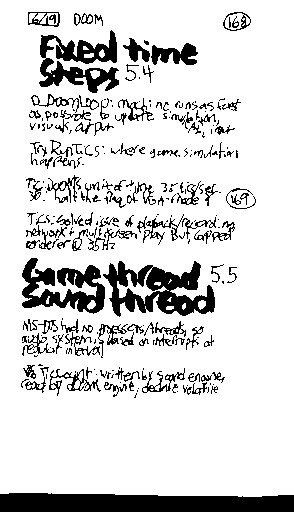 6/19 DOOM 168
Fixed time
Steps 5.4
D_DoomLoop: machine runs as fast
as possible to update simulation,
visuals, output input
TryRunTics: where game simulation
happens.
Tic: DOOM's unit of time 35 tics/sec.
half the freq of VGA mode 169
Tics: solved issue of playback/recording
network + multiscreen play. But, capped
renderer @ 35Hz
Game thread 5.5
Sound thread
MS-DOS had no processes/threads, so
audio system is based on interrupts at
regular interval
TicCount: written by sound engine,
read by doom engine, declare volatile